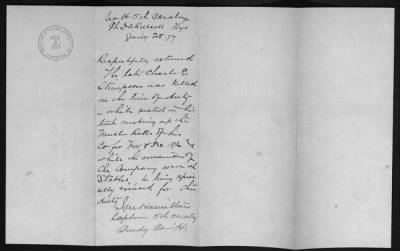 Co H 5th Cavalry
Jany 28 77
Respectfully returned
The late Charles E
Stimpson was killed
in the line of duty
while seated in his
tent making up the
Muster Rolls of his
Co for Nov & Dec 1876 &
while the remainder of
the company were at
Stables, he being
excused for this
duty
Hamilton
Captain 5th Cavalry
Comdg Co H.